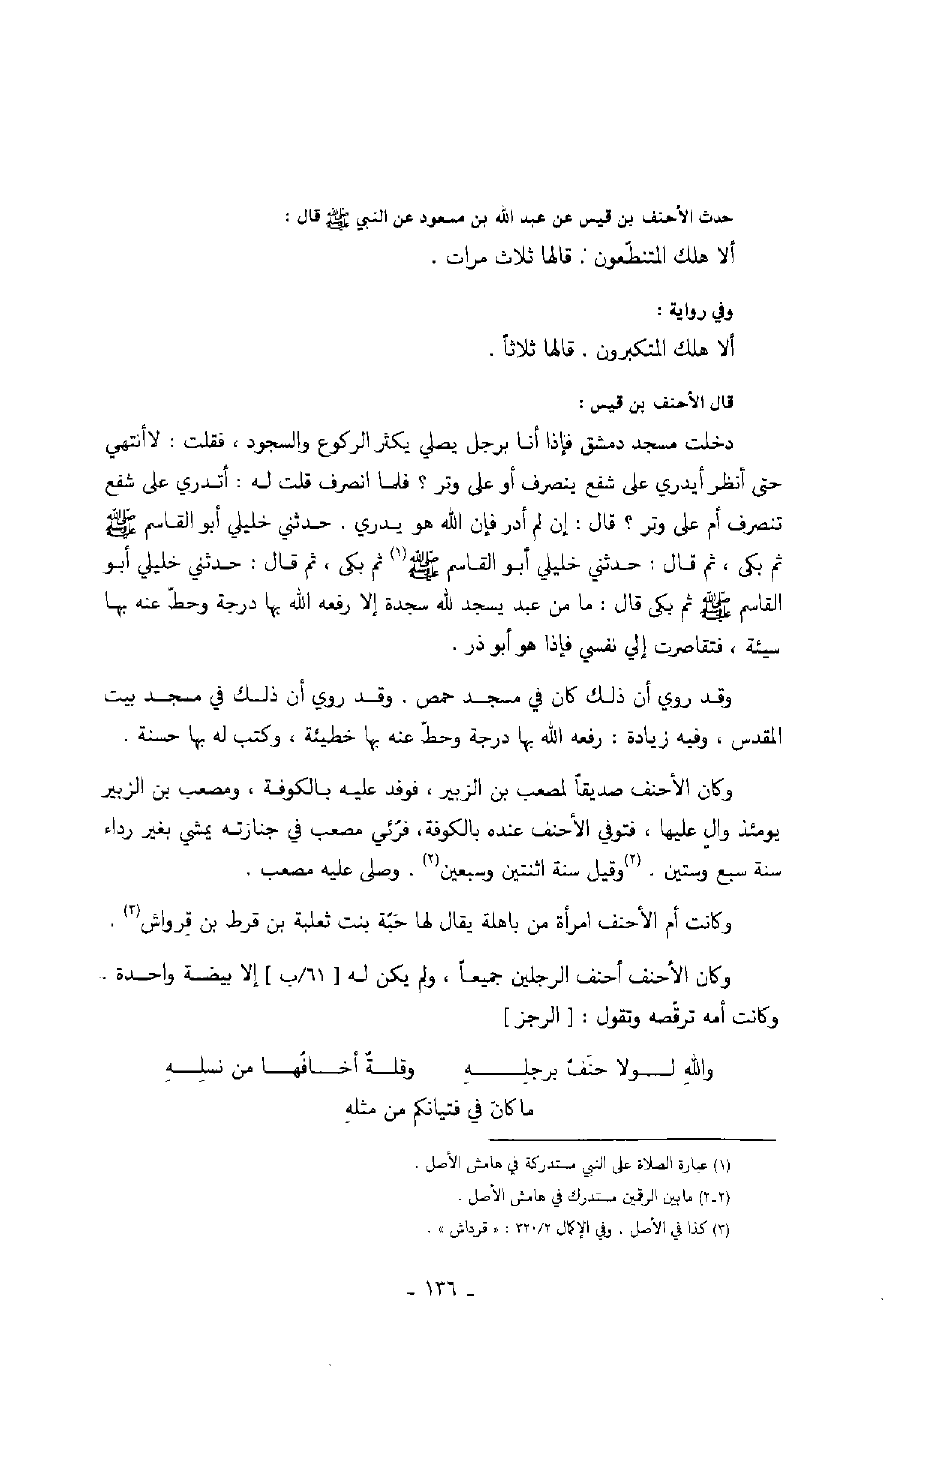 حدث الأحنف بن قيس عن عبد الله بن مسعود عن النبي ﷺ قال :
ألا هلك المتنطّعون . قالها ثلاث مرات .
وفي رواية :
ألا هلك المتكبرون . قالها ثلاثاً .
قال الأحنف بن قيس :
دخلت مسجد دمشق فإذا أنا برجل يصلي يكثر الركوع والسجود ، فقلت : لاأنتهي
حتى أنظر أيدري على شفع ينصرف أو على وتر ؟ فلما انصرف قلت له : أتدري على شفع
تنصرف أم على وتر ؟ قال : إن لم أدر فإن الله هو يدري . حدثني خليلي أبو القاسم ﷺ
ثم بكى ، ثم قال : حدثني خليلي أبو القاسم ﷺ(١) ثم بكى ، ثم قال : حدثني خليلي أبو
القاسم ﷺ ثم بكى قال : ما من عبد يسجد لله سجدة إلا رفعه الله بها درجة وحطّ عنه بها
سيئة ، فتقاصرت إلي نفسي فإذا هو أبو ذر .
وقد روي أن ذلك كان في مسجد حمص . وقد روي أن ذلك في مسجد بيت
المقدس ، وفيه زيادة : رفعه الله بها درجة وحطّ عنه بها خطيئة ، وكتب له بها حسنة .
وكان الأحنف صديقاً لمصعب بن الزبير ، فوفد عليه بالكوفة ، ومصعب بن الزبير
يومئذ والٍ عليها ، فتوفي الأحنف عنده بالكوفة، فرُئي مصعب في جنازته يمشي بغير رداء
سنة سبع وستين . (٢)وقيل سنة اثنتين وسبعين(٢) . وصلى عليه مصعب .
وكانت أم الأحنف امرأة من باهلة يقال لها حبّة بنت ثعلبة بن قرط بن قرواش(٣) .
وكان الأحنف أحنف الرجلين جميعاً ، ولم يكن له [ ٦١/ب ] إلا بيضة واحدة .
وكانت أمه ترقّصه وتقول : [ الرجز ]
واللهِ لولا حنَفٌ برجلِهِ وقلةٌ أخافُها من نسلِهِ
ماكانَ في فتيانكم من مثلهِ
(١) عبارة الصلاة على النبي مستدركة في هامش الأصل .
(٢-٢) مابين الرقمين مستدرك في هامش الأصل .
(٣) كذا في الأصل . وفي الإكمال ٣٢٠/٢ : « قرداش » .
- ١٣٦ -